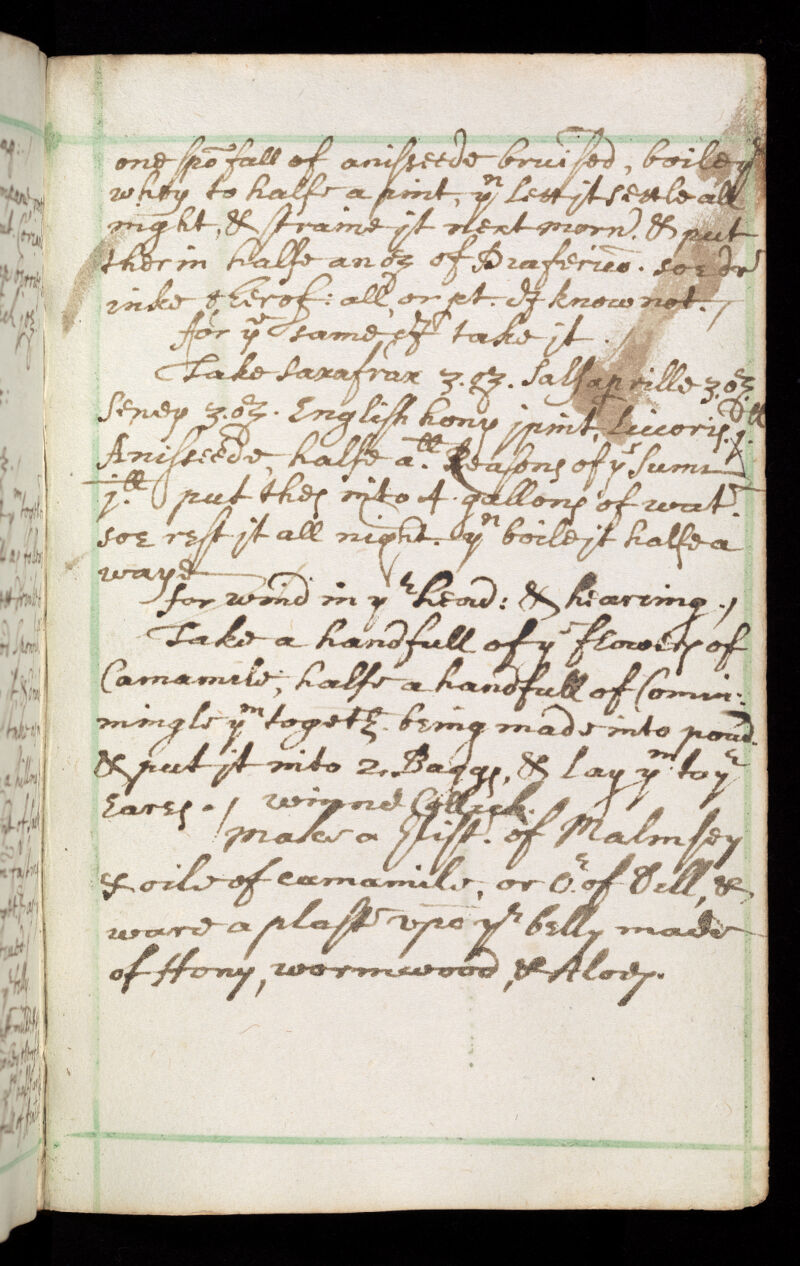 one spōfall of anisseede bruised, boile yr
whey to halfe a pint, yn lett jt settle all
night, & straine jt next morn. & put
ther in halfe an oz of Diaferico. soe dr
inke therof: all, or pt. J know not. /
for ye same J take jt.
Take saxafrax 3. oz. Salsaprille 3 oz.
Seney 3. oz. English hony j pint, Licoris. j.
Anisseede, halfe a ll. Reasons of ye Sunn
j. ll put thes into 4 gallons of wat.
soe rest jt all night. yn boile jt halfe a
waye
for wind in yr head: & hearring. /
Take a handfull of ye flowers of
Camamile, halfe a handfull of Comin:
mingle ym togeth. being made into powd.
& put jt into 2. Baggs, & lay ym to yr
Eares. / winne Collick.
Make a Glist. of Malmsey
& oile of camamile, or O. of Dill, &
ware a plast vpō yr belly made
of Hony, wormwood, & Aloes.